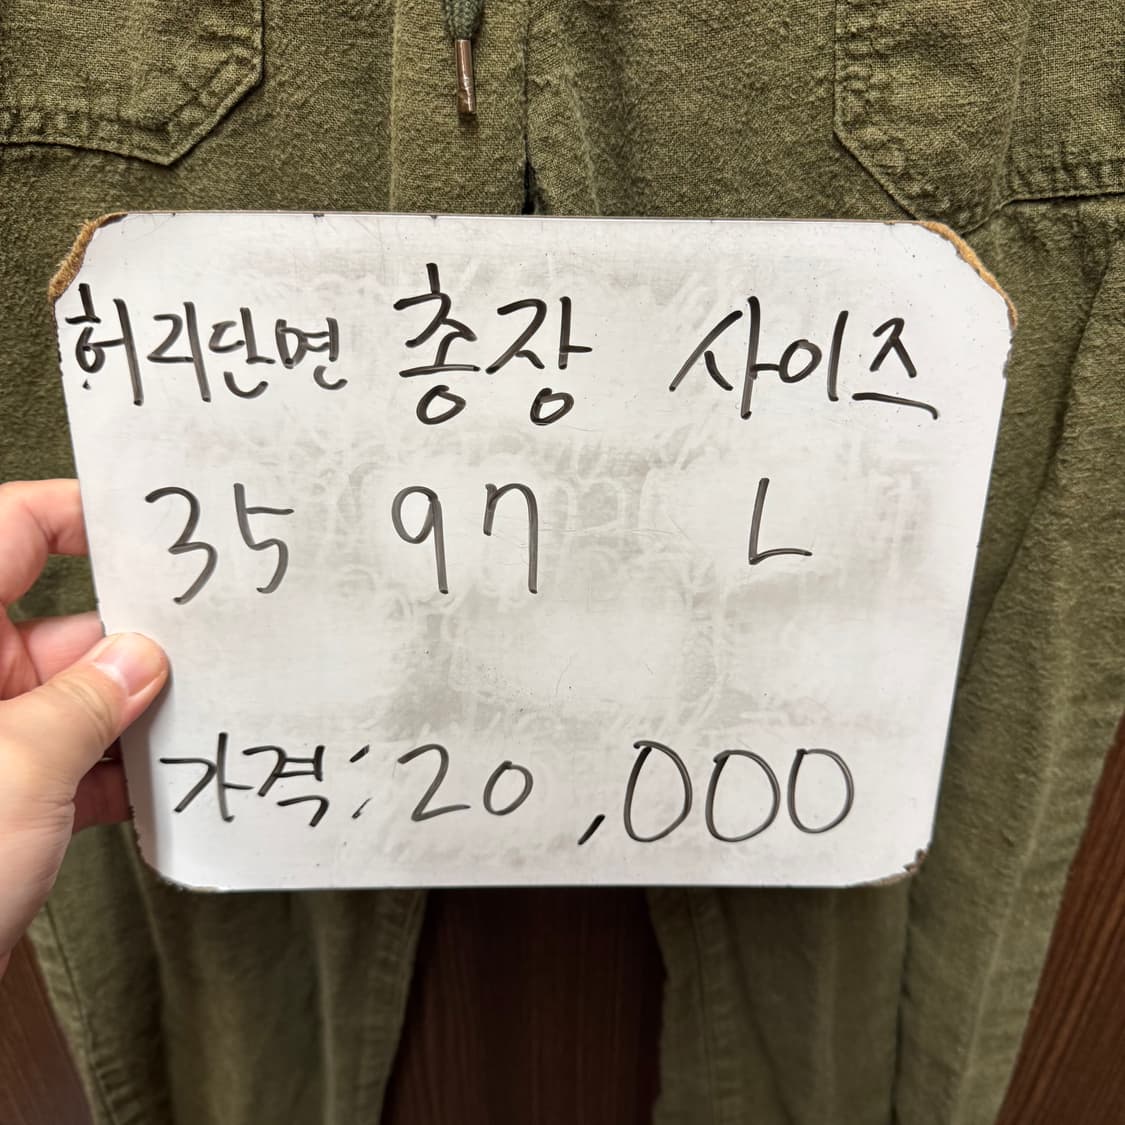 허리단면 총장 사이즈
35 97 L
가격: 20,000